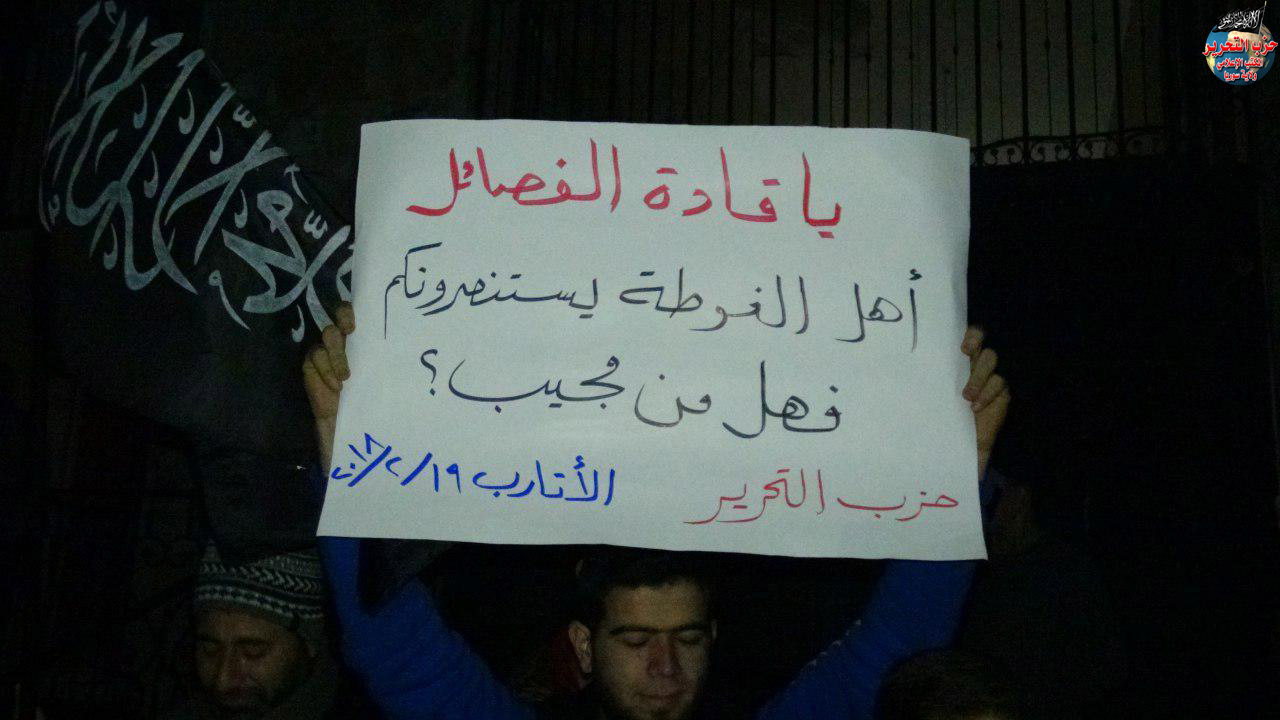 يا قادة الفصائل
أهل الغوطة يستنصرونكم
فهل من مجيب؟
حزب التحرير
الأتارب ١٩/٢/٢٠١٨
حزب التحرير
المكتب الإعلامي
ولاية سوريا